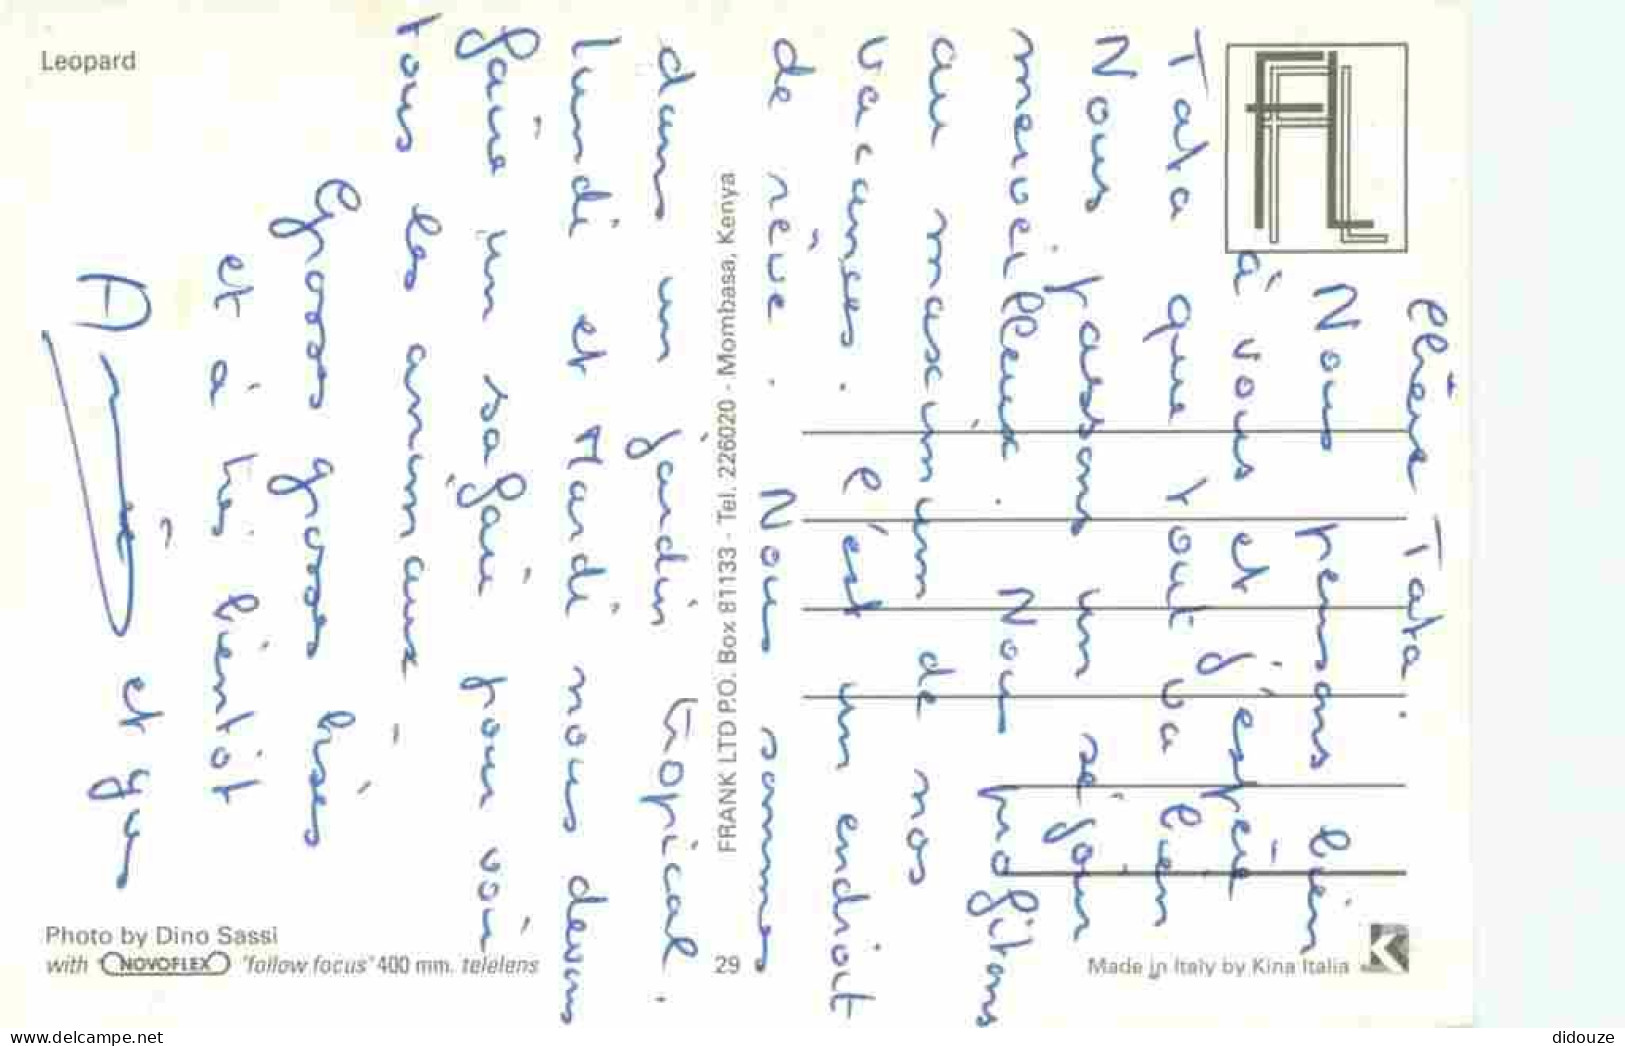 Leopard
Chère Tata.
Nous pensons bien
à vous et j'espère
Tata que tout va bien
Nous passons un séjour
merveilleux. Nous profitons
au maximum de nos
vacances. C'est un endroit
de rêve. Nous sommes
dans un jardin tropical.
lundi et Mardi nous devons
faire un safari pour voir
tous les animaux -
Grosses grosses bises
et à très bientôt
et
FRANK LTD P.O. Box 81133 - Tel. 226020 - Mombasa, Kenya
Photo by Dino Sassi
with NOVOFLEX "follow focus" 400 mm. telelens
29
Made in Italy by Kina Italia
K
www.delcampe.net
didouze